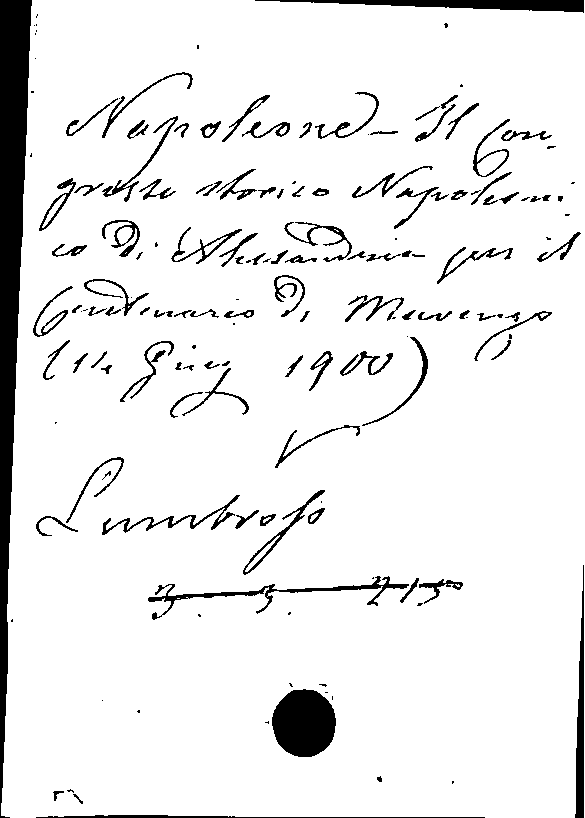 Napoleone - Il Con-
gresso storico Napoleoni-
co di Alessandria per il
Centenario di Marengo
(14 Giug 1900)
Lumbroso
3. 3. 215